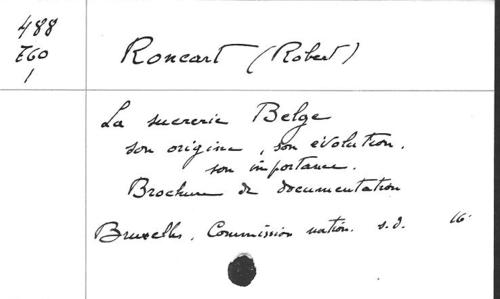 488
E60
1
Roncart (Robert)
La sucrerie Belge
son origine, son évolution,
son importance.
Brochure de documentation
Bruxelles, Commission nation. s.d. 16°